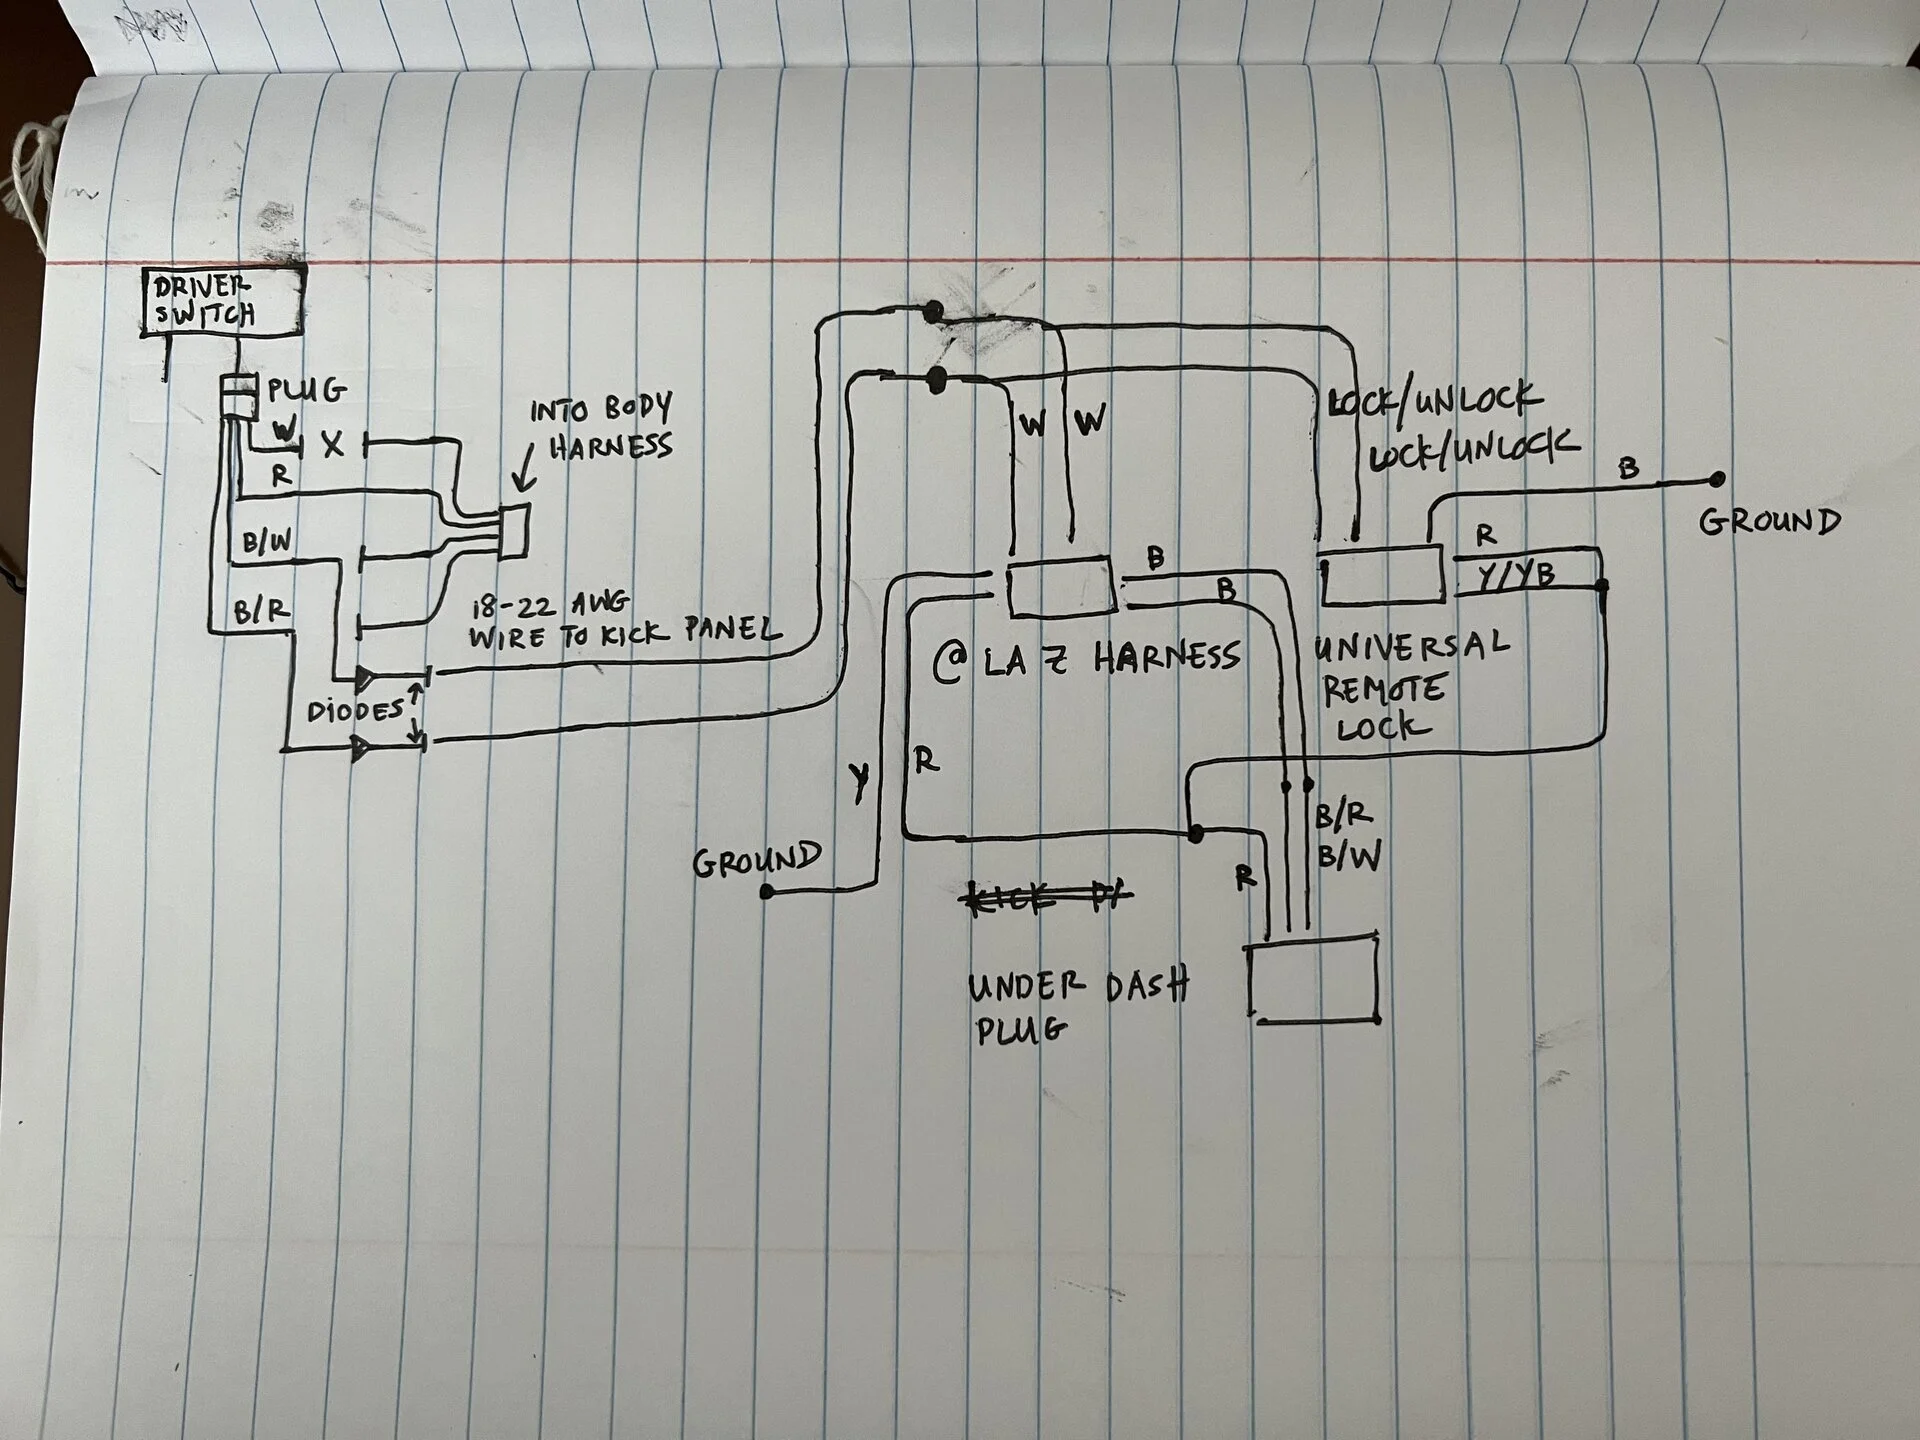 DRIVER
SWITCH
PLUG
W
X
R
B/W
B/R
INTO BODY
HARNESS
18-22 AWG
WIRE TO KICK PANEL
DIODES
W
W
LOCK/UNLOCK
LOCK/UNLOCK
B
GROUND
B
B
R
Y/YB
@ LA Z HARNESS
UNIVERSAL
REMOTE
LOCK
Y
R
GROUND
B/R
B/W
R
UNDER DASH
PLUG